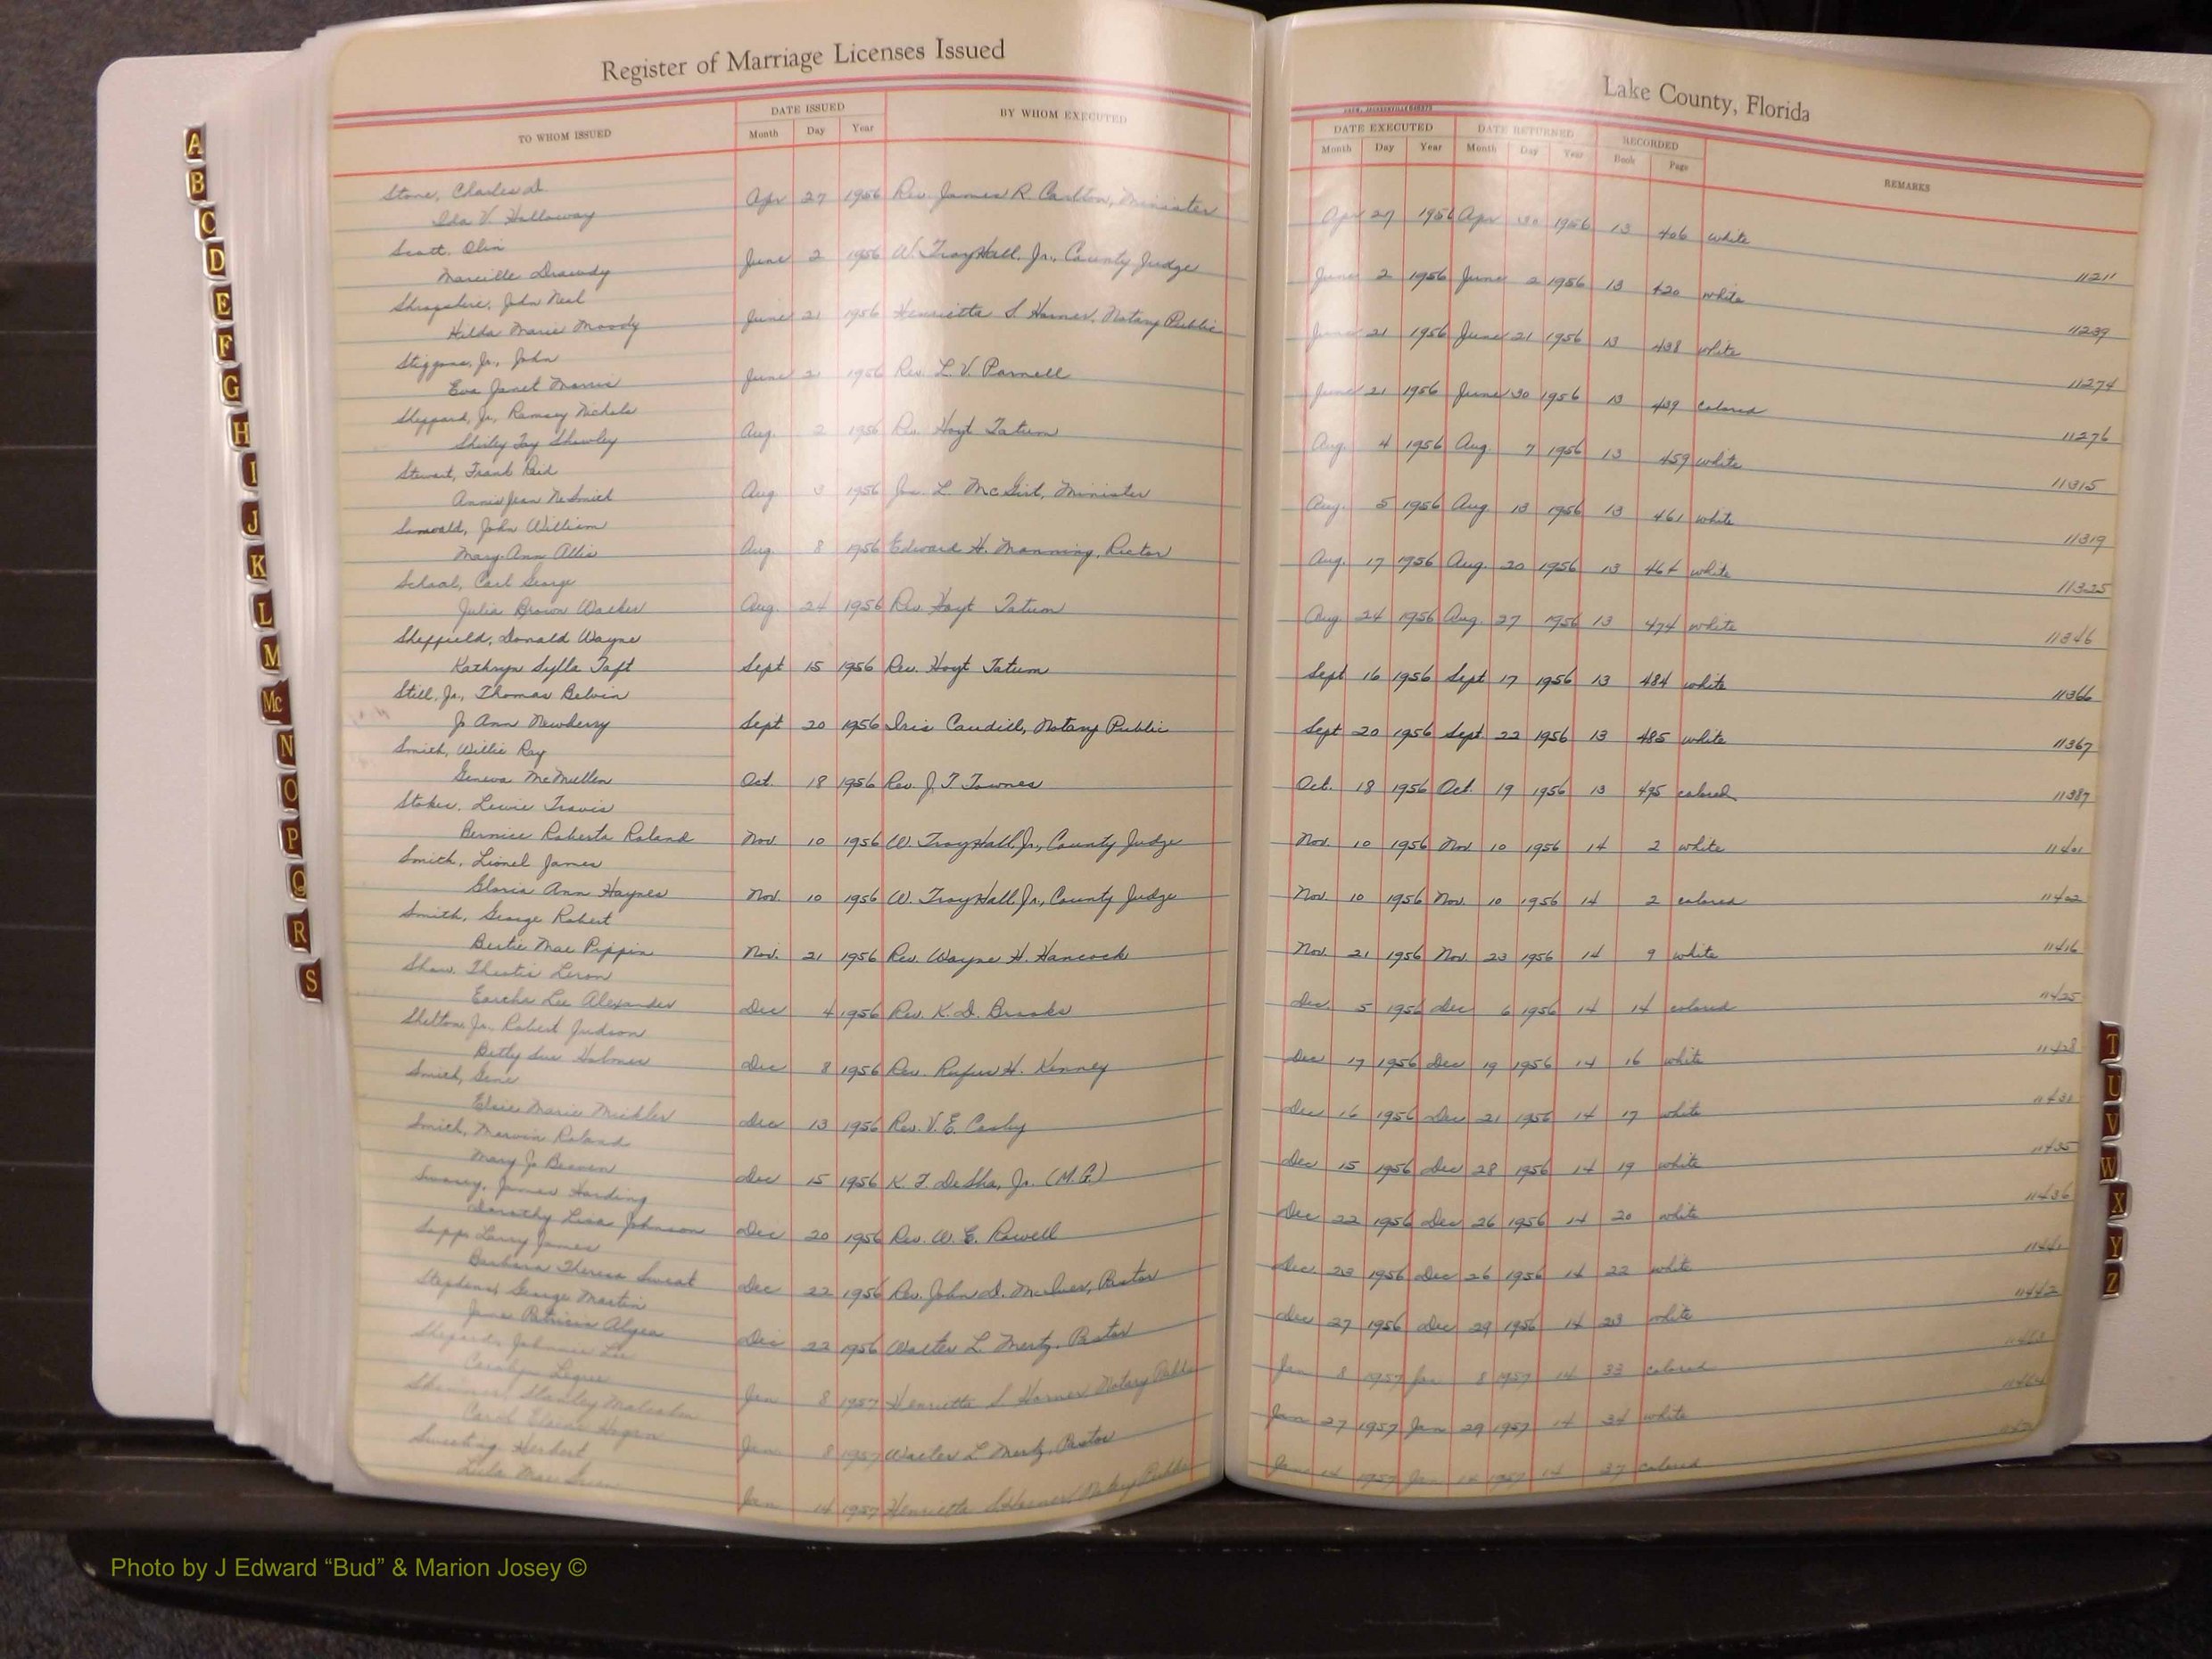 Register of Marriage Licenses Issued
Lake County, Florida
TO WHOM ISSUED
DATE ISSUED
Month Day Year
BY WHOM EXECUTED
DATE EXECUTED
Month Day Year
DATE RETURNED
Month Day Year
RECORDED
Book Page
REMARKS
Stone, Charles
Ida V. Holloway Apr 27 1956 Rev. James R. Carlton, Minister Apr 27 1956 Apr 30 1956 13 406 white
Scott, Olin
Marcille Drawdy June 2 1956 W. Troy Hall, Jr., County Judge June 2 1956 June 2 1956 13 420 white 11211
Shropshire, John Neal
Hilda Marie Moody June 21 1956 Henrietta S Horner, Notary Public June 21 1956 June 21 1956 13 438 white 11239
Stiggons, Jr., John
Eva Janet Morris June 21 1956 Rev. L. V. Parnell June 21 1956 June 30 1956 13 439 colored 11274
Sheppard, Jr., Ramsey Nichols
Shirley Fay Shawley Aug. 2 1956 Rev. Hoyt Tatum Aug. 4 1956 Aug. 7 1956 13 459 white 11276
Stewart, Frank Reid
Annie Jean NeSmith Aug 3 1956 Jas. L. McGirt, Minister Aug. 5 1956 Aug 13 1956 13 461 white 11315
John William
Mary Ann Allis Aug 8 1956 Edward H. Manning, Rector Aug. 17 1956 Aug. 20 1956 13 464 white 11319
School, Carl George
Julia Brown Walker Aug. 24 1956 Rev Hoyt Tatum Aug 24 1956 Aug. 27 1956 13 474 white 11325
Sheffield, Donald Wayne
Kathryn Sylla Taft Sept 15 1956 Rev. Hoyt Tatum Sept 16 1956 Sept 17 1956 13 484 white 11346
Still, Jr., Thomas Belvin
Jo Ann Newberry Sept 20 1956 Iris Caudill, Notary Public Sept 20 1956 Sept 22 1956 13 485 white 11366
Smith, Willie Ray
Geneva McMullen Oct. 18 1956 Rev. J. T. Townes Oct. 18 1956 Oct. 19 1956 13 495 colored 11367
Stokes, Lewie Travis
Bernice Roberta Roland Nov. 10 1956 W. Troy Hall, Jr., County Judge Nov. 10 1956 Nov 10 1956 14 2 white 11387
Smith, Lionel James
Gloria Ann Haynes Nov. 10 1956 W. Troy Hall, Jr., County Judge Nov. 10 1956 Nov. 10 1956 14 2 colored 11401
Smith, George Robert
Bertie Mae Pippin Nov. 21 1956 Rev. Wayne H. Hancock Nov. 21 1956 Nov. 23 1956 14 9 white 11402
Shaw, Theotis Leron
Eartha Lee Alexander Dec 4 1956 Rev. K. D. Brooks Dec. 5 1956 Dec 6 1956 14 14 colored 11416
Shelton, Jr., Robert Judson
Betty Sue Holmes Dec 8 1956 Rev. Rufus H. Kenney Dec 17 1956 Dec 19 1956 14 16 white 11425
Smith, Gene
Elsie Marie Mickler Dec 13 1956 Rev. V. E. Dec 16 1956 Dec 21 1956 14 17 white 11428
Smith, Mervin Roland
Mary Jo Dec 15 1956 K. T. DeSha, Jr. (M.G.) Dec 15 1956 Dec 28 1956 14 19 white 11431
James Harding
Dorothy Johnson Dec 20 1956 Rev. W. E. Rowell Dec 22 1956 Dec 26 1956 14 20 white 11435
Sapp, Larry James
Barbara Theresa Sweat Dec 22 1956 Rev. John D. Pastor Dec. 23 1956 Dec 26 1956 14 22 white 11436
Stephens, George Martin
Jane Patricia Alyea Dec 22 1956 Walter L. Mertz, Pastor Dec 27 1956 Dec 29 1956 14 23 white 11441
Johnnie Lee
Carolyn Jan 8 1957 Henrietta S Horner Notary Public Jan 8 1957 Jan 8 1957 14 33 colored 11442
Stanley Malcolm
Carol Elaine Hogan Jan 8 1957 Walter L Mertz, Pastor Jan 27 1957 Jan 29 1957 14 34 white
Sweeting, Herbert
Lula Mae Jan 14 1957 Henrietta S Horner, Notary Public Jan 14 1957 Jan 14 1957 14 37 colored
A
B
C
D
E
F
G
H
I
J
K
L
M
Mc
N
O
P
Q
R
S
T
U
V
W
X
Y
Z
Photo by J Edward “Bud” & Marion Josey ©